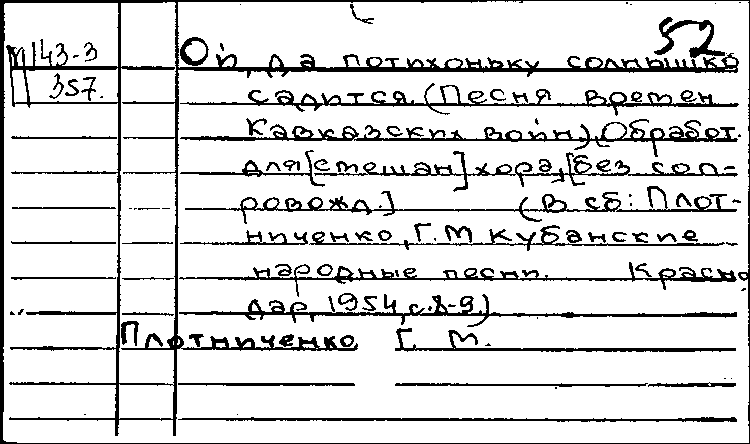 52
М143-3
357.
Ой, да потихоньку солнышко
садится. (Песня времен
Кавказских войн). Обработ.
для [смешан] хора, [без соп-
ровожд.] (В сб: Плот-
ниченко, Г.М Кубанские
народные песни. Красно
дар, 1954, с.8-9.)
Плотниченко Г. М.